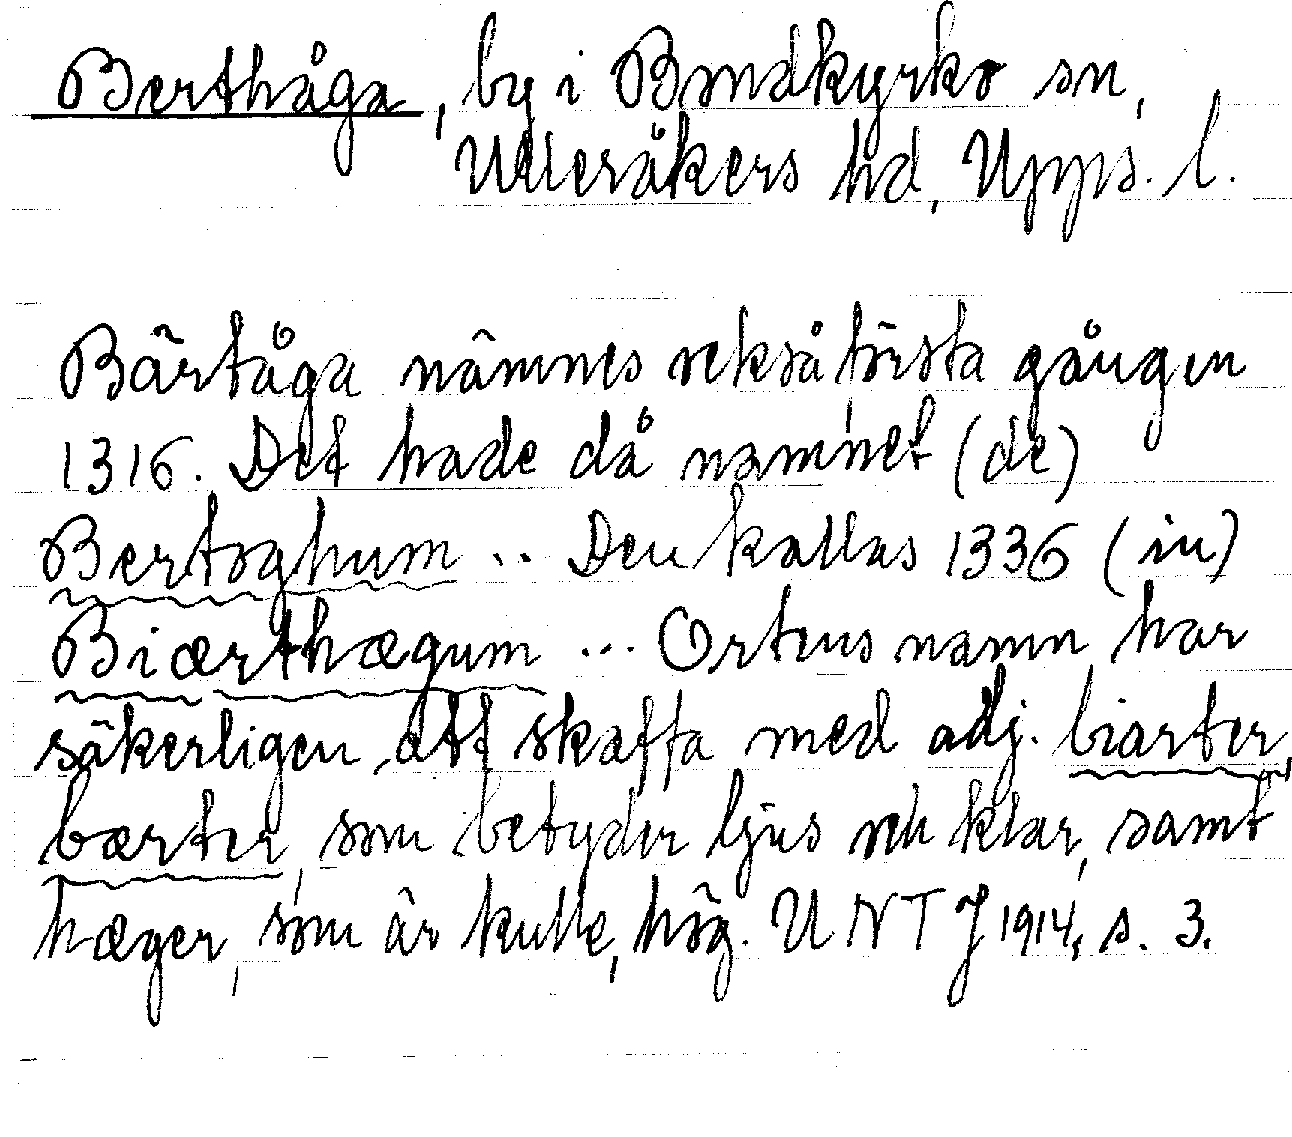 Berthåga, by i Bondkyrko sn,
Ulleråkers hd, Upps. l.
Bärtåga nämnes också första gången
1316. Det hade då namnet (de)
Bertoghum .. Den kallas 1336 (in)
Biærthægum ... Ortens namn har
säkerligen att skaffa med adj. biarter,
bærter, som betyder ljus och klar, samt
hæger, som är kulle, hög. UNTJ 1914, s. 3.